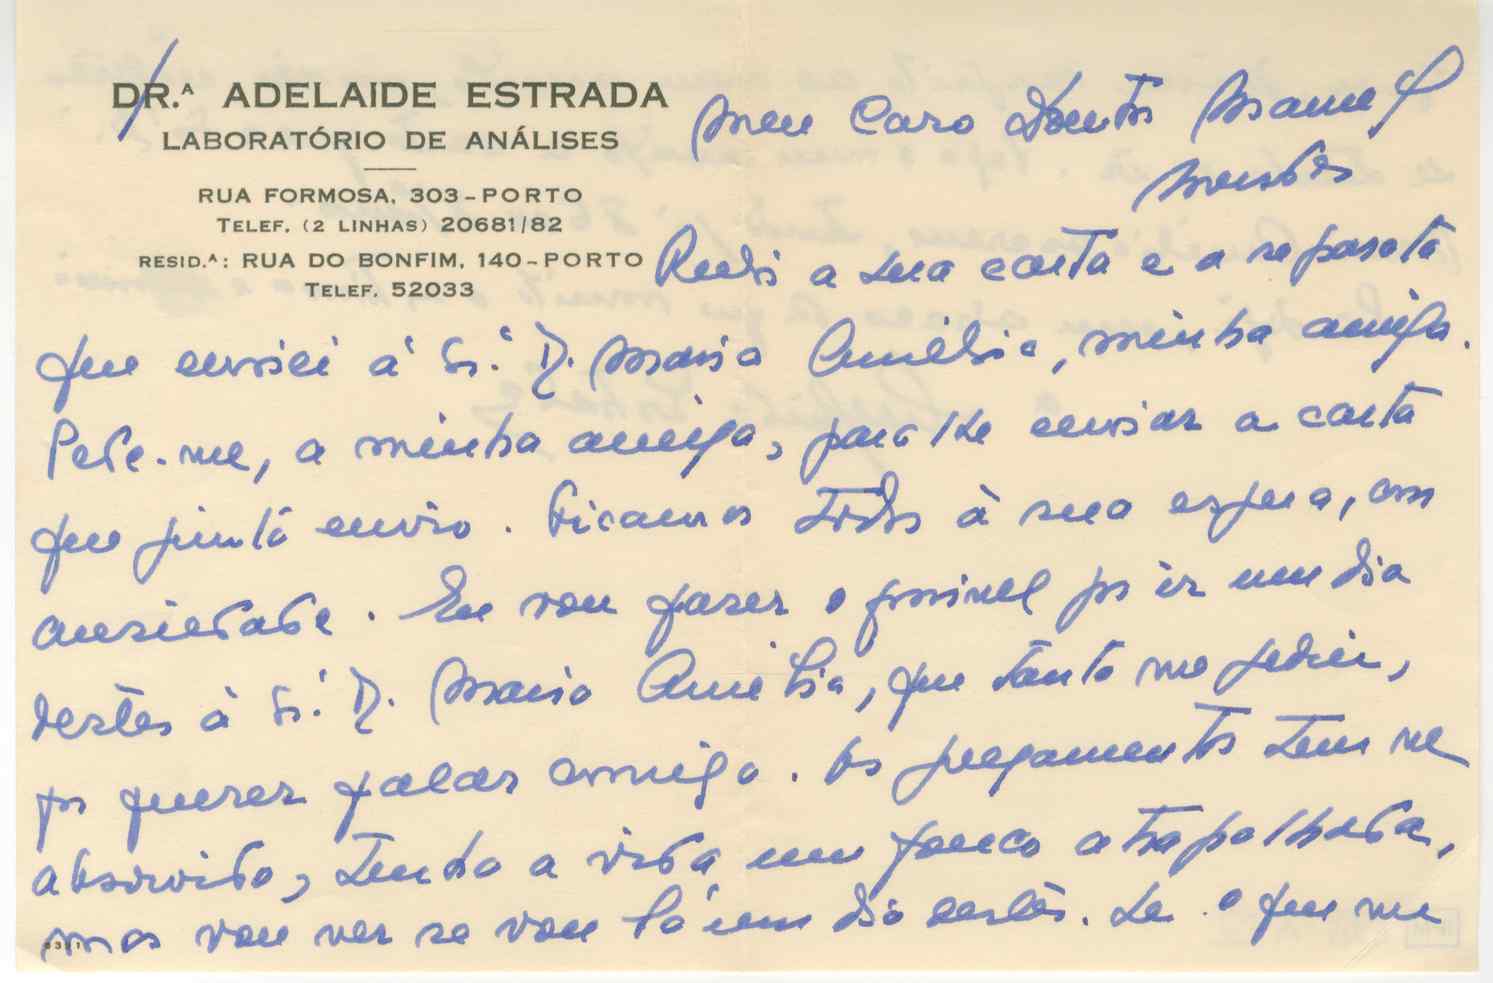 DR.ᴬ ADELAIDE ESTRADA
LABORATÓRIO DE ANÁLISES
RUA FORMOSA, 303-PORTO
TELEF. (2 LINHAS) 20681/82
RESID.ᴬ: RUA DO BONFIM, 140-PORTO
TELEF. 52033
Meu Caro Doutor Manuel
Mendes
Recebi a sua carta e a resposta
que enviei á Sr.ª D. Maria Amélia, minha amiga.
Pede-me, a minha amiga, para lhe enviar a carta
que junto envio. Ficamos todos à sua espera, com
ansiedade. Eu vou fazer o possivel pª ir um dia
destes à Sr.ª D. Maria Amélia, que tanto me pediu,
pª querer falar comigo. Os julgamentos tem me
absorvido, tenho a vida um pouco atrapalhada,
mas vou ver se vou lá um dia destes. Se o que me